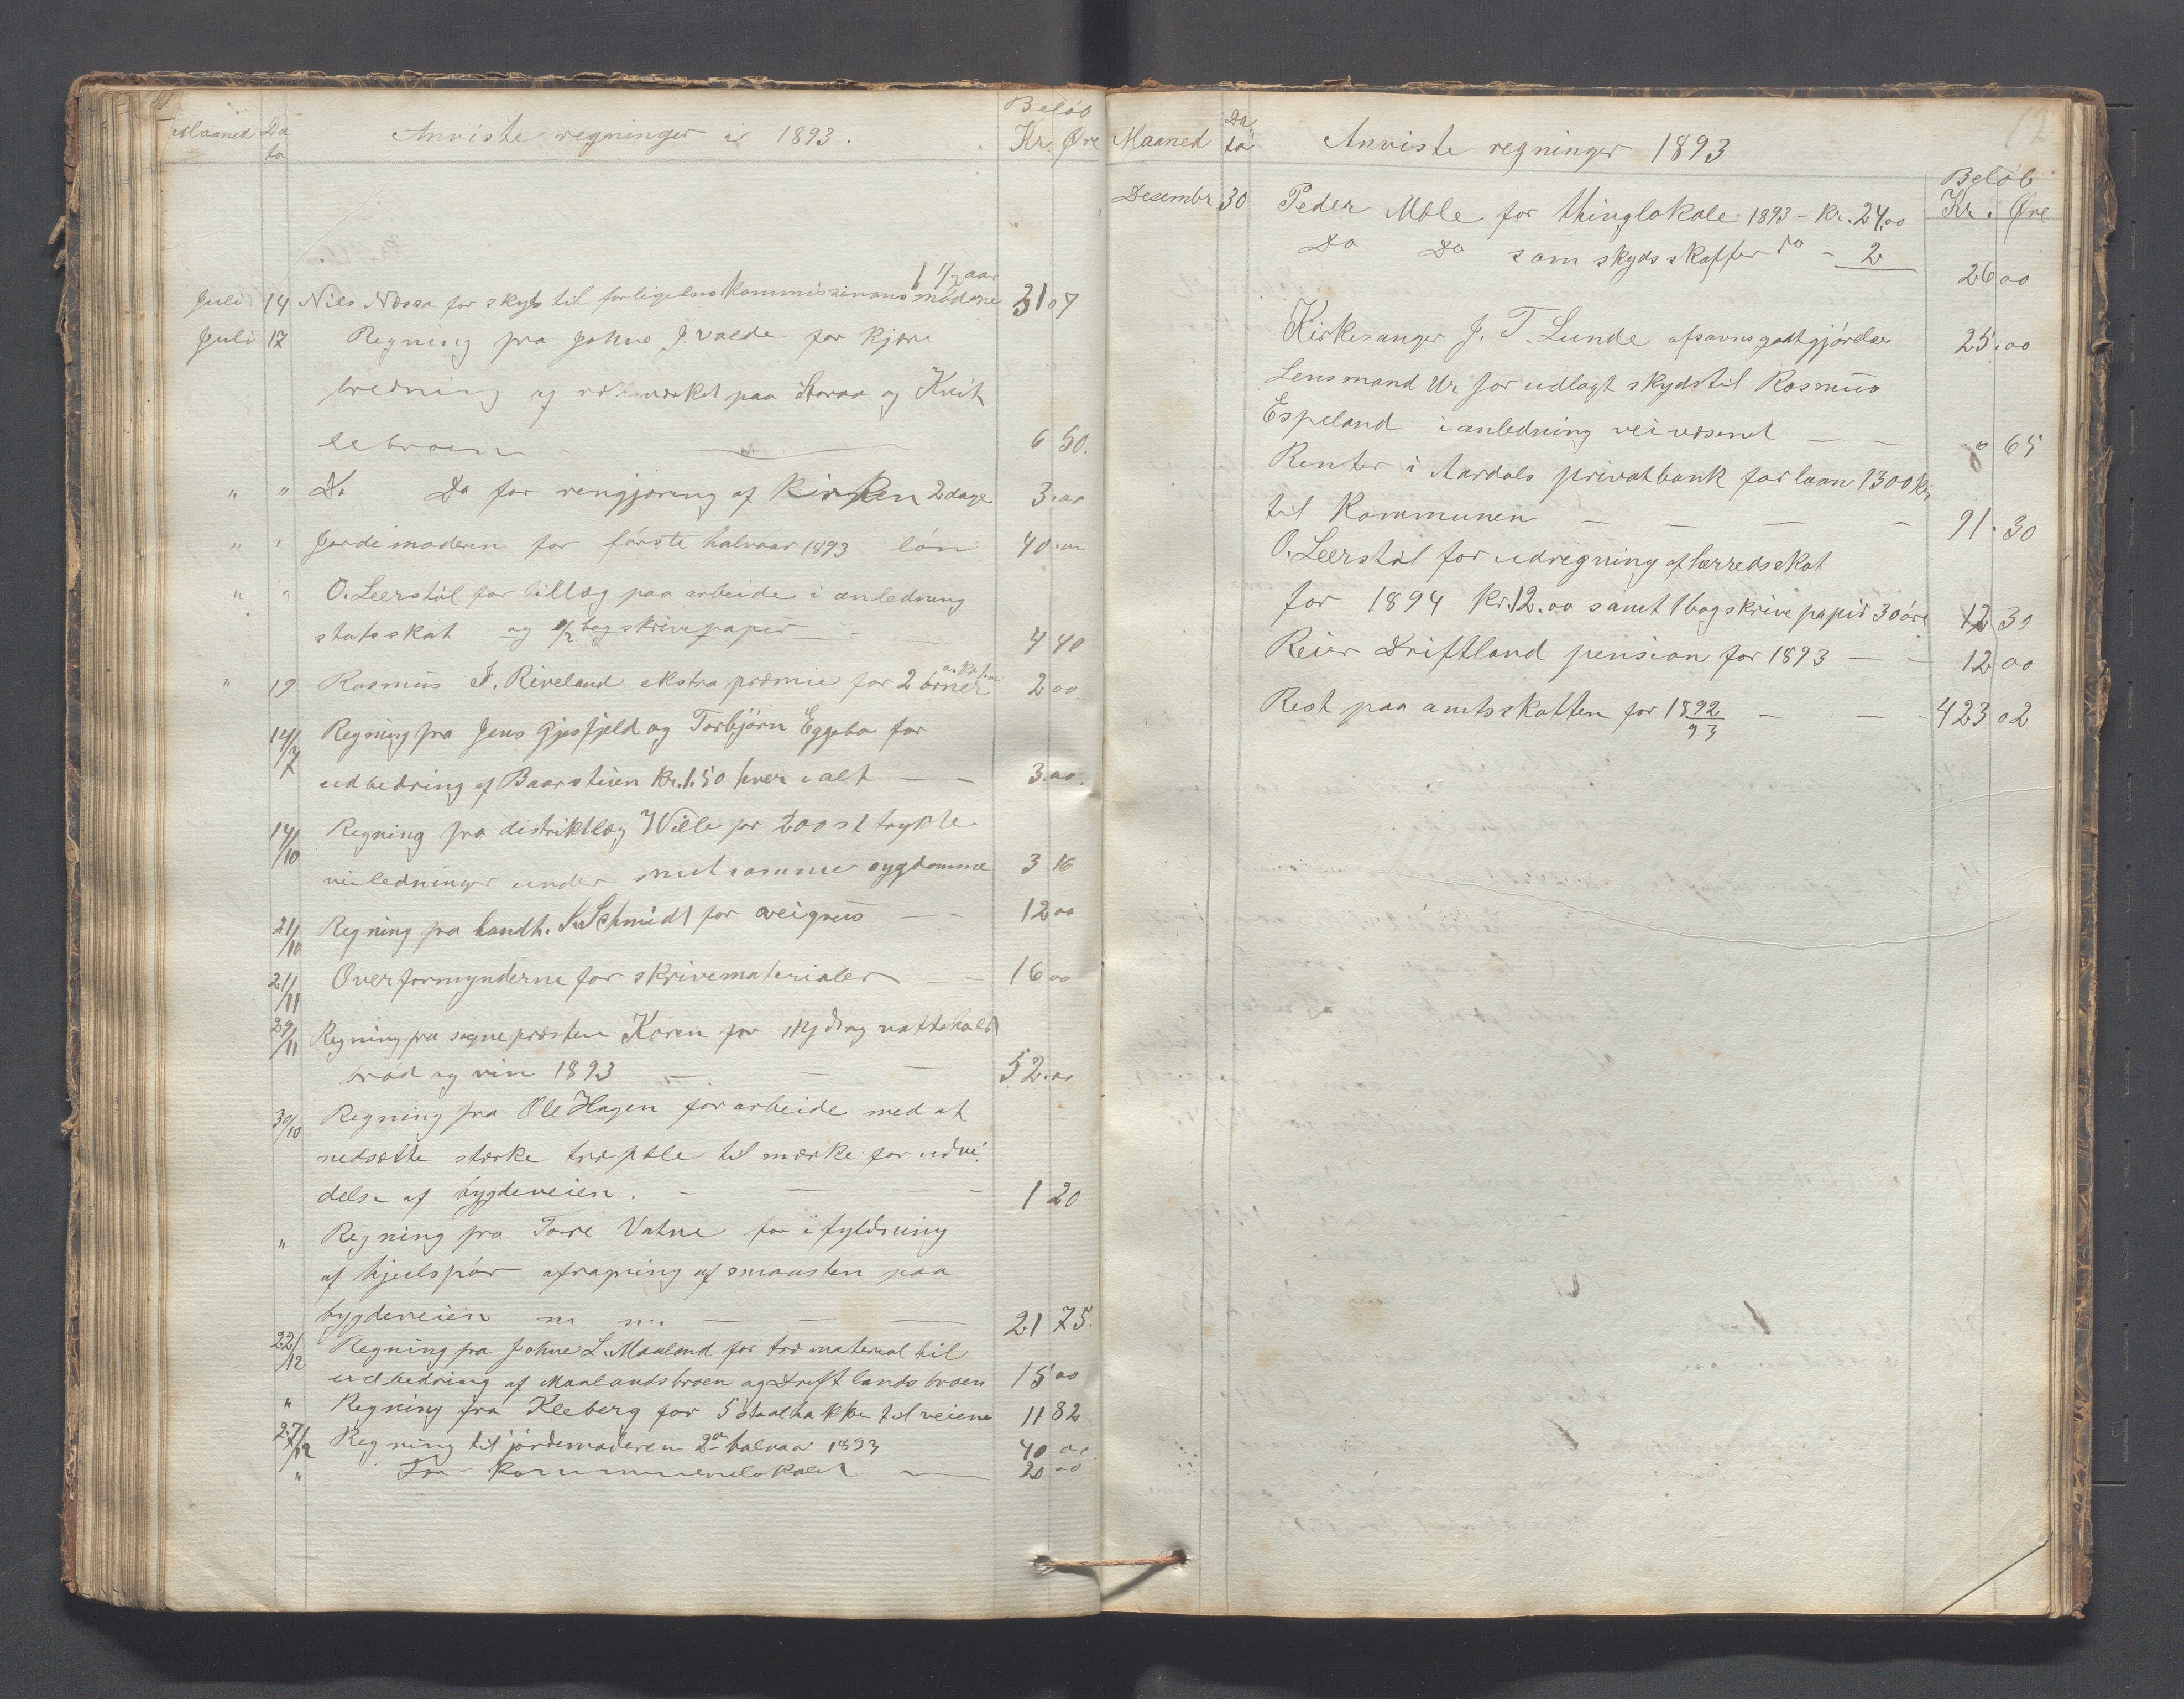 Maaned Da to Anviste regninger i 1893. Beløb Kr. Øre
1 1/2 aar
Juli 14 Nils Nessa for skyds til forligelseskommissionens møderne 31 07
Juli 17 Regning fra Johne J. Valde for kjøre
bredning og rækværket paa Storaa og Kvit
lebroen 6 50.
" " Do Do for rengjøring af Kirken 2 dage 3.00
" " Jordemoderen for første halvaar 1893 løn 40.00
" " O. Leerstøl for tillæg paa arbeide i anledning
statsskat og 1/2 bog skrivepapir 4 40
" 19 Rasmus J. Riveland ekstra præmie for 2 ørner a. Kr. 1.00 2 00.
14/7 Regning fra Jens Gjesfjeld og Torbjørn Eggebø for
udbedring af Baarstien Kr. 1.50 hver i alt — — 3.00.
14/10 Regning fra distriktlæg Wille for 200 st trykte
veiledninger under smitsomme sygdomme 3 16
21/10 Regning fra handh. S. Schmidt for veigrus — — 12 00
21/11 Overformynderne for skrivematerialer — 16 00
29/11 Regning fra sogneprésten Koren for skyds og nattehold
brød og vin 1893 — — — 52.00
30/10 Regning fra Ole Hagen for arbeide med at
nedsætte stærke træpæle til mærke for udvi
delse af bygdeveien. — — — 1 20
" Regning fra Tore Vatne for ifyldning
af hjulspor afraping af smaasten paa
bygdeveien m m. — — — 21 75.
22/12 Regning fra Johne L. Maaland for træmaterial til
udbedring af Maalandsbroen og Driftlandsbroen 15 00
" Regning fra Kleberg for 5 staalhakke til veiene 11 82
27/12 Regning til jordemoderen 2det halvaar 1893 40 00.
" For kommunelokalet — 20 00
12
Maaned Da to Anviste regninger 1893
Beløb
Kr. Øre
Desembr 30 Peder Mæle for thinglokale 1893 - Kr. 24.00
Do Do som skydsskaffer do - 2
26 00
Kirkesanger J. T. Lunde afsavnsgodtgjørelse 25.00
Lensmand Ur for udlagt skyds til Rasmus
Espeland i anledning veivæsenet — — " 65
Renter i Aardals privatbank for laan 1300 kr,
til Kommunen — — — — 91.30
O. Leerstøl for udregning af herredsskat
for 1894 Kr. 12.00 samt 1 bog skrivepapir 30 øre 12 30
Reier Driftland pension for 1893 — — 12 00
Rest paa amtsskatten for 1892/93 — — — 423 02